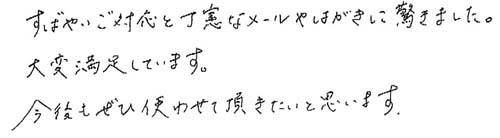 すばやいご対応と丁寧なメールやはがきに驚きました。
大変満足しています。
今後もぜひ使わせて頂きたいと思います.